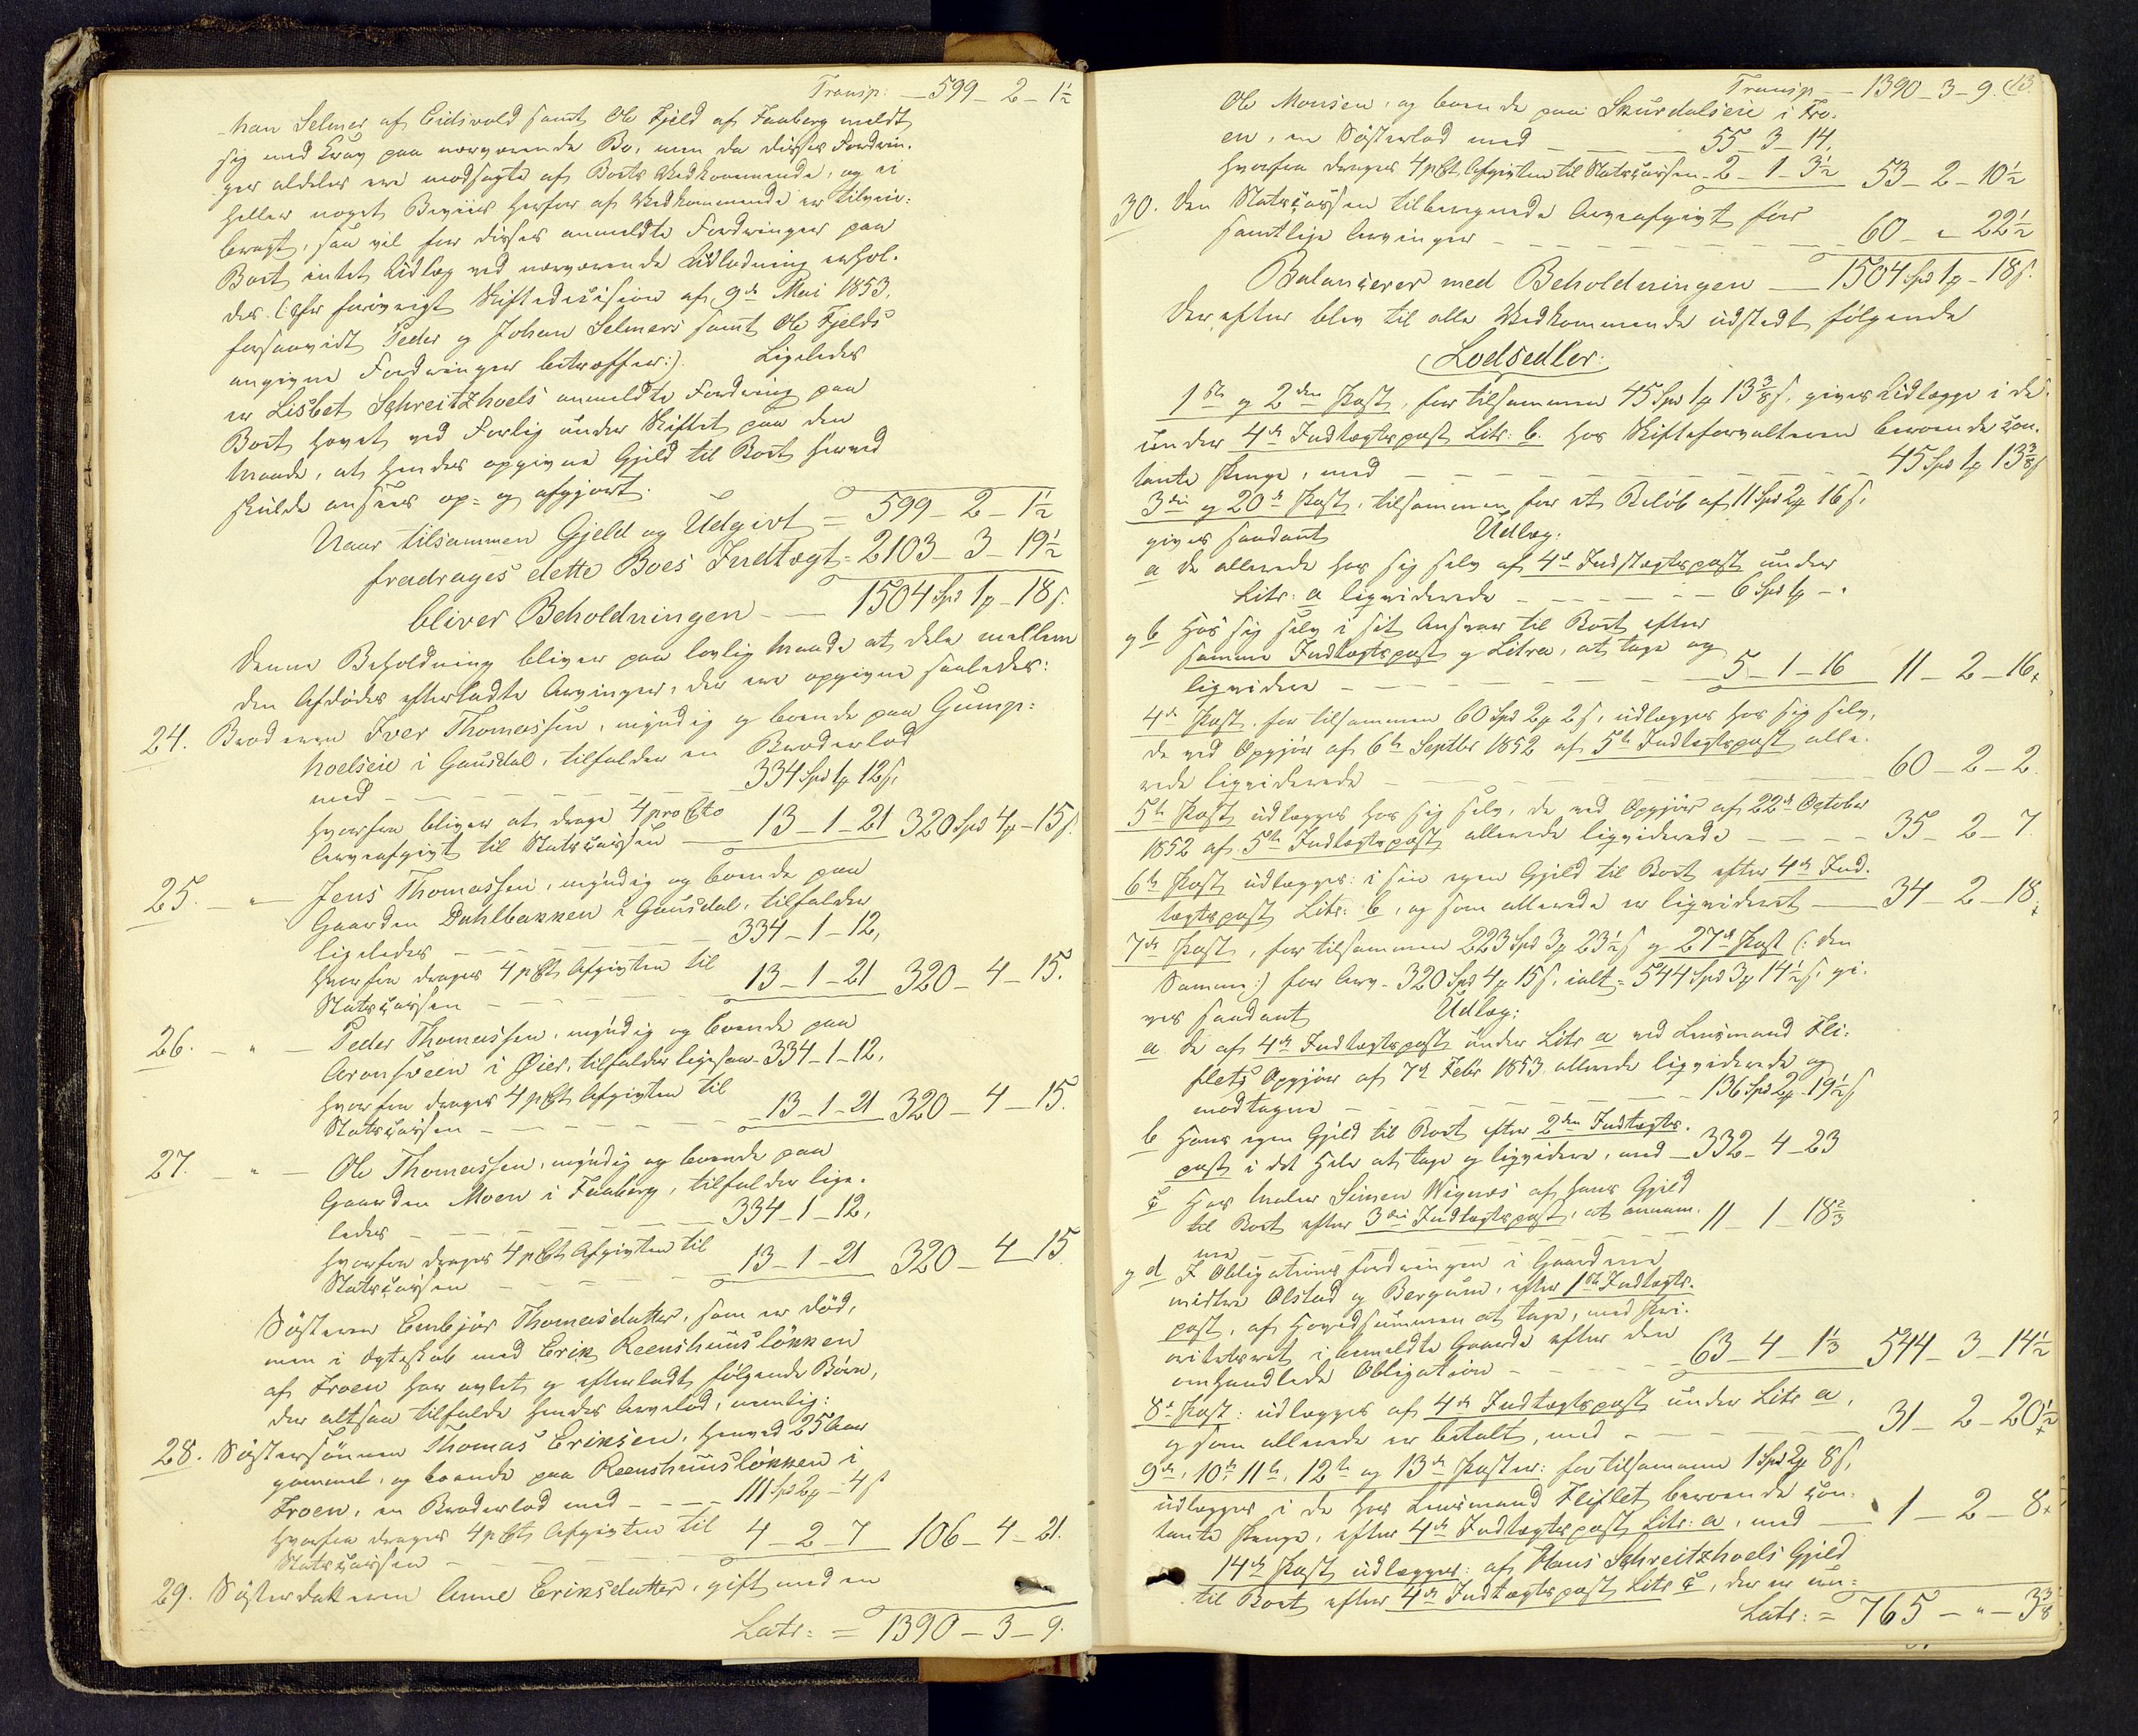 Transp: — 599 — 2 — 1½
han Selmer af Eidsvold samt Ole Fjeld af Faaberg meldt
sig med Krav paa nærværende Bo, men da disses Fordrin-
ger aldeles ere modsagte af Boets Vedkommende, og ei
heller noget Beviis herfor af Vedkommende er tilveie-
bragt, saa vil for disses anmeldte Fordringer paa
Boet intet Udlæg ved nærværende Udlodning erhol-
des. (: cfr forøvrigt Skiftedecision af 9de Mai 1853,
forsaavidt Peder og Johan Selmers samt Ole Fjelds
angivne Fordringer betræffer:). Ligeledes
er Lisbet Schreitzhoels anmeldte Fordring paa
Boet hævet ved Forlig under Skiftet paa den
Maade, at hendes opgivne Gjeld til Boet herved
skulde ansees op- og afgjort.
Naar tilsammen Gjeld og Udgivt = 599 — 2 — 1½
fradrages dette Boes Indtægt = 2103 — 3 — 19½
bliver Beholdningen — 1504 Spd 1 p — 18 s.
Denne Beholdning bliver paa lovlig Maade at dele mellem
den Afdødes efterladte Arvinger, der ere opgivne saaledes:
24. Broderen Iver Thomassen, myndig og boende paa Gump-
hoelseie i Gausdal, tilfalder en Broderlod
med — 334 Spd 1 p 12 s.
hvorfra bliver at drage 4 pro Cto
Arveafgivt til Statscassen — 13 — 1 — 21 320 Spd 4 p — 15 s.
25. — " — Jens Thomassen, myndig og boende paa
Gaarden Dahlbakken i Gausdal, tilfalder
ligeledes — 334 — 1 — 12,
hvorfra drages 4 p Ct Afgivten til
Statscassen — 13 — 1 — 21 320 — 4 — 15.
26. — " — Peder Thomassen, myndig og boende paa
Aronsveen i Øier, tilfalder ligesaa — 334 — 1 — 12,
hvorfra drages 4 p Ct Afgivten til
Statscassen — 13 — 1 — 21 320 — 4 — 15.
27. — " — Ole Thomassen, myndig og boende paa
Gaarden Moen i Faaberg, tilfalder lige-
ledes — 334 — 1 — 12,
hvorfra drages 4 p Ct Afgivten til
Statscassen — 13 — 1 — 21 320 — 4 — 15
Søsteren Embjør Thomasdatter, som er død,
men i Ægteskab med Erik Reenshuusløkken
af Froen har avlet og efterladt følgende Børn,
der altsaa tilfalde hendes Arvelod, nemlig:
28. Søstersønnen Thomas Eriksen, henved 25 Aar
gammel, og boende paa Reenshuusløkken i
Froen, en Broderlod med — 111 Spd 2 p — 4 s
hvorfra drages 4 p Ct Afgivten til
Statscassen — 4 — 2 — 7 106 — 4 — 21.
29. Søsterdatteren Anne Eriksdatter, gift med en
Latr: = 1390 — 3 — 9.
Transp — 1390 — 3 — 9. 13.
Ole Monsen, og boende paa Skurdalseie i Fro-
en, en Søsterlod med — 55 — 3 — 14,
hvorfra drages 4 p Ct Afgivten til Statscassen — 2 — 1 — 3½ 53 — 2 — 10½
30. Den Statscassen tilberegnede Arveafgivt for
samtlige Arvinger — 60 — " — 22½
Balancerer med Beholdningen — 1504 Spd 1 p — 18 s.
Derefter blev til alle Vedkommende udstedt følgende
Lodsedler:
1ste og 2den Post, for tilsammen 45 Spd 1 p 13⅜ s, gives Udlægge i de
under 4de Indtægtspost Litr: b. hos Skifteforvalteren beroende con-
tante Penge, med — 45 Spd 1 p 13⅜ s
3die og 20de Post, tilsammen for et Beløb af 11 Spd 2 p 16 s,
gives saadant Udlæg:
a de allerede hos sig selv af 4de Indtægtspost under
Litr: a liqviderede — 6 Spd 1 p — "
og b Hos sig selv i sit Ansvar til Boet efter
samme Indtægtspost og Litra, at tage og
liqvidere — 5 — 1 — 16 11 — 2 — 16.
4de Post, for tilsammen 60 Spd 2 p 2 s, udlægges hos sig selv,
de ved Opgjør af 6te Septbr 1852 af 5te Indtægtspost alle-
rede liqviderede — 60 — 2 — 2.
5te Post udlægges hos sig selv, de ved Opgjør af 22de October
1852 af 5te Indtægtspost allerede liqviderede — 35 — 2 — 7.
6te Post udlægges: i sin egen Gjeld til Boet efter 4de Ind-
tægtspost Litr: b, og som allerede er liqvideret — 34 — 2 — 18.
7de Post, for tilsammen 223 Spd 3 p 23½ s og 27de Post (: den
Samme:) for Arv — 320 Spd 4 p 15 s, ialt = 544 Spd 3 p 14½ s, gi-
ves saadant Udlæg:
a. de af 4de Indtægtspost under Litr a ved Lensmand Fli-
flets Opgjør af 7de Febr 1853 allerede liqviderede og
modtagne — 136 Spd 2 p — 19½ s
b Hans egen Gjeld til Boet efter 2den Indtægts-
post i det Hele at tage og liqvidere, med — 332 — 4 — 23
c Hos Maler Simen Wignæs af hans Gjeld
til Boet efter 3die Indtægtspost, at annam-
me — 11 — 1 — 18⅔
og d I Obligationsfordringen i Gaardene
midtre Olstad og Bergum, efter 1ste Indtægts-
post, af Hovedsummen at tage, med Pri-
oritetsret i bemeldte Gaarde efter den
omhandlede Obligation — 63 — 4 — 1⅓ 544 — 3 — 14½
8de Post: udlægges af 4de Indtægtspost under Litr a,
og som allerede er betalt, med — 31 — 2 — 20½
9de, 10de 11te, 12te og 13de Poster: for tilsammen 1 Spd 2 p 8 s,
udlægges i de hos Lensmand Fliflet beroende con-
tante Penge, efter 4de Indtægtspost Litr: a, med — 1 — 2 — 8.
14de Post udlægges: af Hans Schreitzhoels Gjeld
til Boet efter 4de Indtægtspost Litr c, der er un-
Latr: = 765 — " — 3⅜